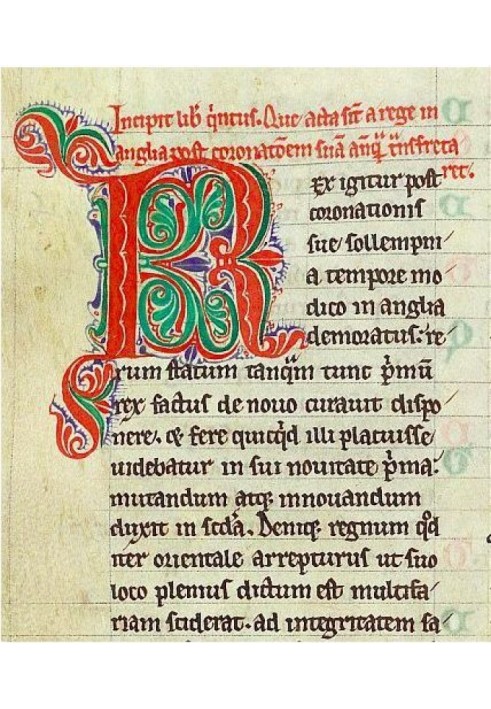 Incipit lib̄ q̇ntus. Que acta sūt a rege in
anglia post coronatōem suā anq̄ tnsfreta
ret.
Rex igitur post
coronationis
sue sollempni
a tempore mo
dico in anglia
demoratus. re
rum statum tanq̄m tunc p̄mū
rex factus de nouo curauit dispo
nere. & fere quicq̇d illi placuisse
uidebatur in sui nouitate p̄ma.
mutandum atq; innouandum
duxit in scd̄a. Deniq; regnum qd̄
iter orientale arrepturus ut suo
loco plenius dictum est multifa
riam sciderat. ad integritatem sa